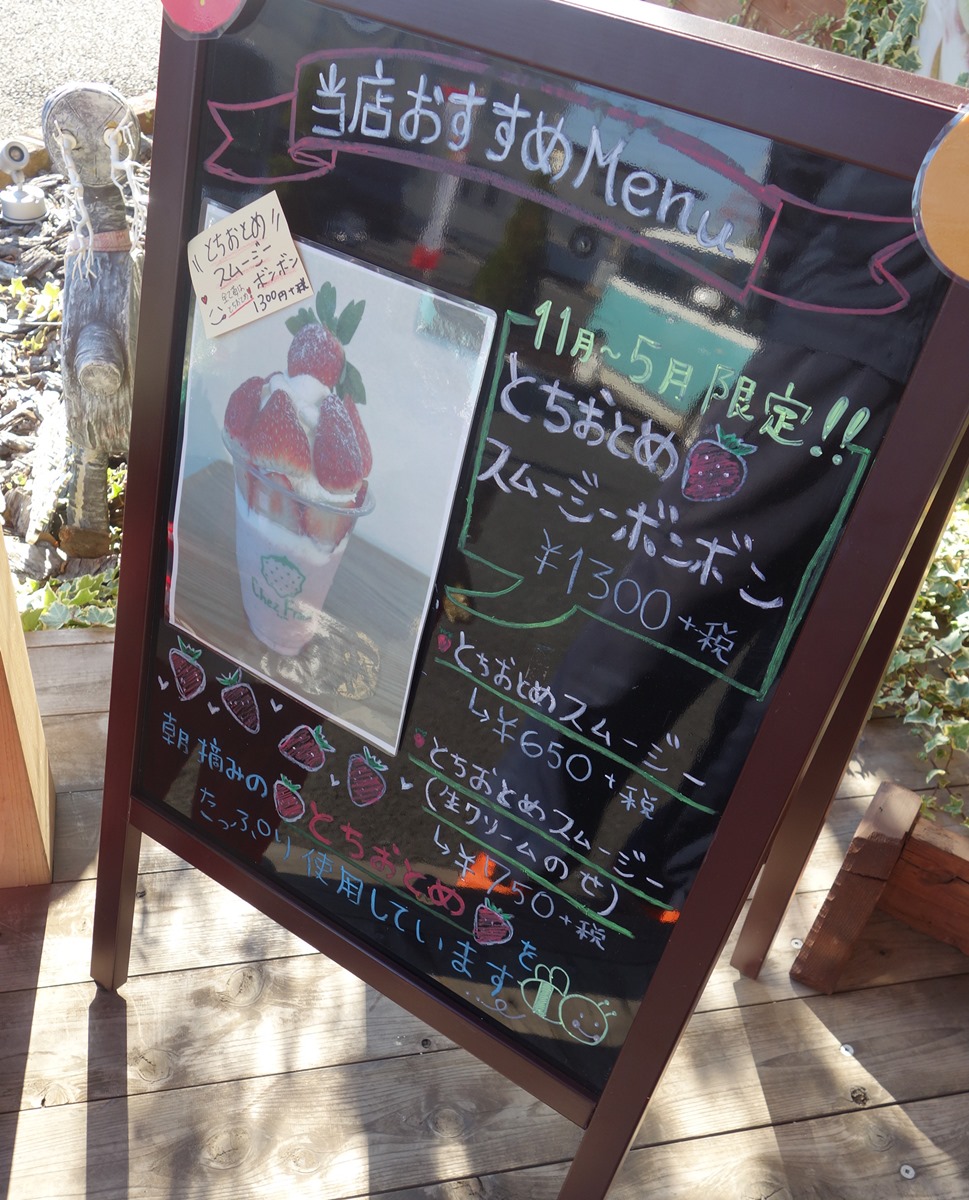 当店おすすめMenu
\\ とちおとめ //
スムージー
ボンボン
全て苺は
とちおとめ
1300円+税
Chez Frai
11月~5月限定!!
とちおとめ
スムージーボンボン
¥1300+税
とちおとめスムージー
↳¥650+税
とちおとめスムージー
(生クリームのせ)
↳¥750+税
朝摘みのとちおとめを
たっぷり使用しています